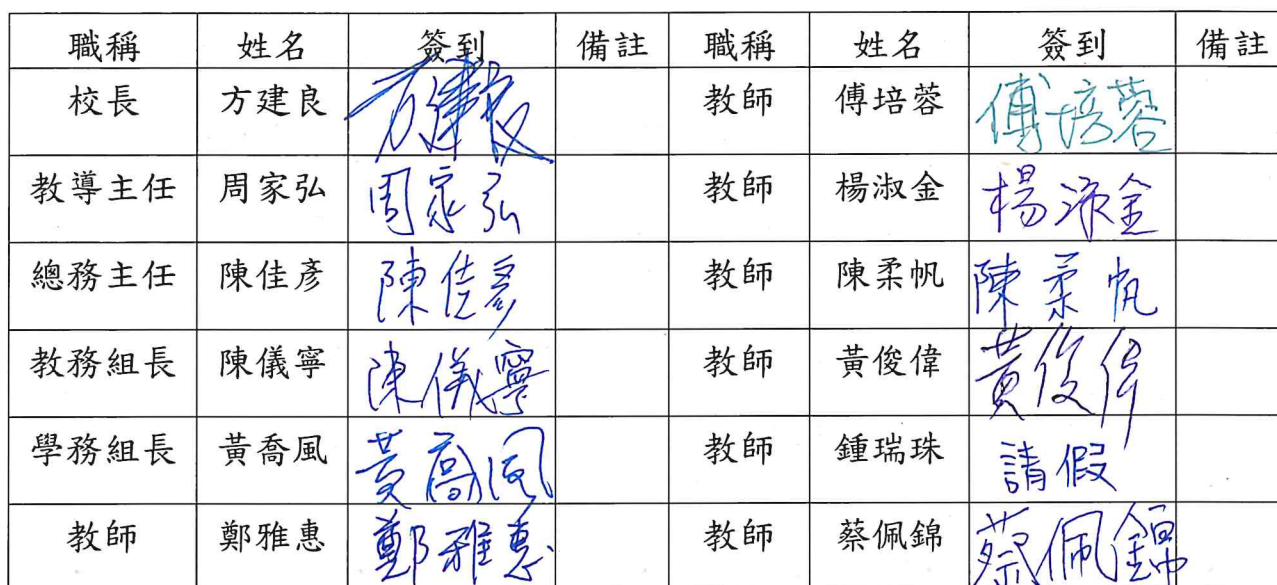 職稱 姓名 簽到 備註 職稱 姓名 簽到 備註
校長 方建良 方建良 教師 傅培蓉 傅培蓉
教導主任 周家弘 周家弘 教師 楊淑金 楊淑金
總務主任 陳佳彥 陳佳彥 教師 陳柔帆 陳柔帆
教務組長 陳儀寧 陳儀寧 教師 黃俊偉 黃俊偉
學務組長 黃喬風 黃喬風 教師 鍾瑞珠 請假
教師 鄭雅惠 鄭雅惠 教師 蔡佩錦 蔡佩錦